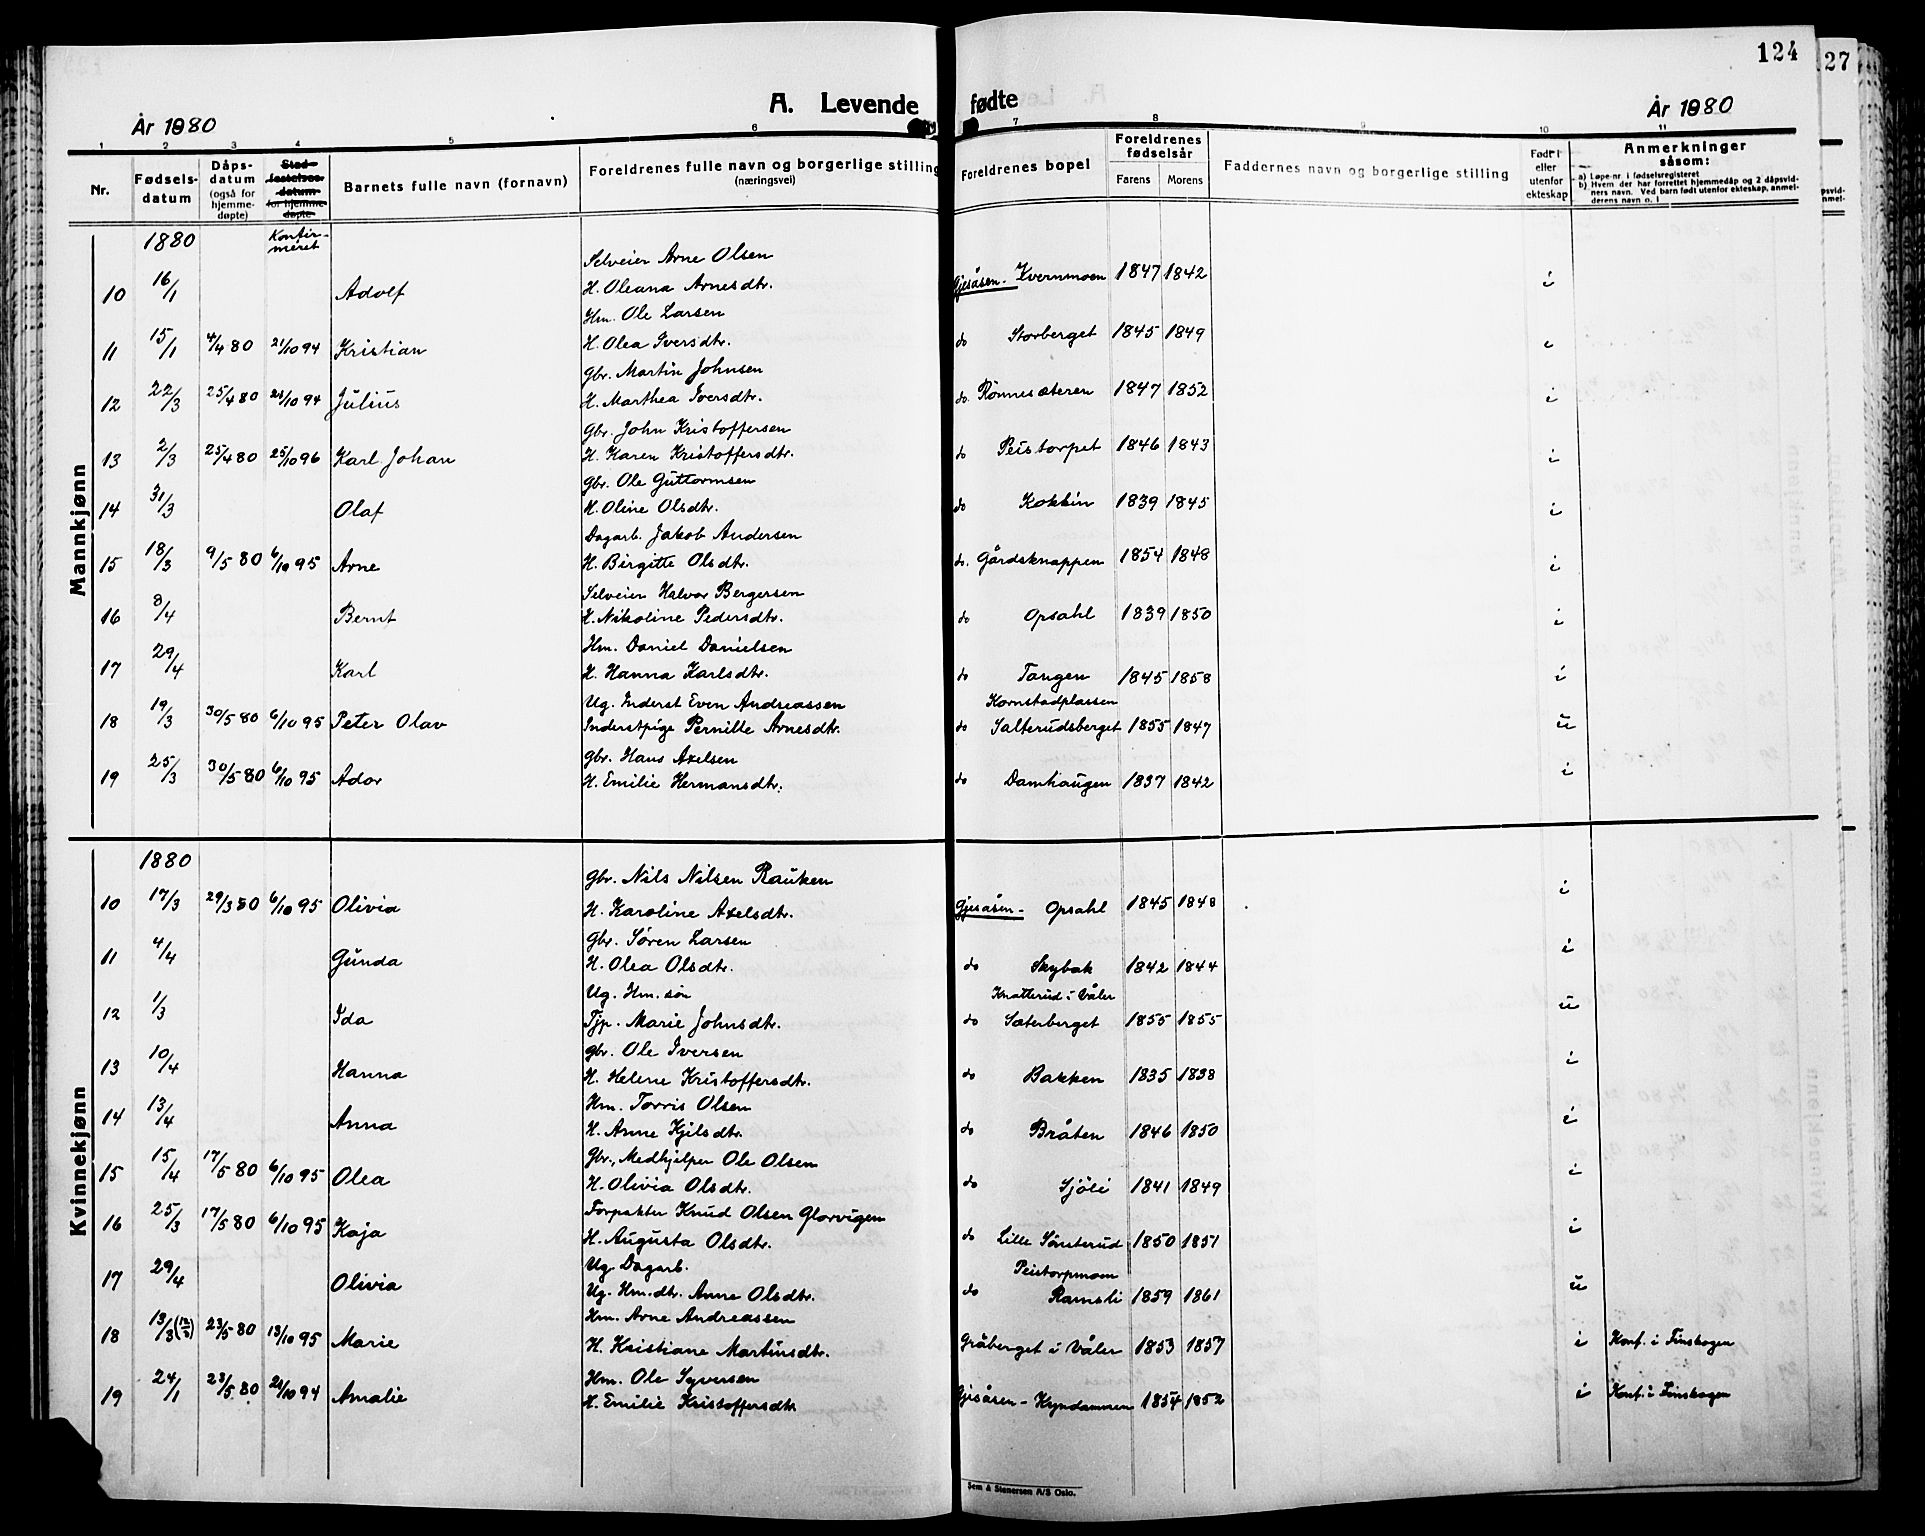 124
27
A. Levende fødte
År 1880
År 1880
1 2 3 4 5 6 7 8 9 10 11
Nr.
Fødsels-datum
Dåps-datum (også for hjemme-døpte)
Stad-festelses-datum for hjemme-døpte
Barnets fulle navn (fornavn)
Foreldrenes fulle navn og borgerlige stilling (næringsvei)
Foreldrenes bopel
Foreldrenes fødselsår
Farens Morens
Faddernes navn og borgerlige stilling
Født i eller utenfor ekteskap
Anmerkninger såsom:
a) Løpe-nr. i fødselsregisteret
b) Hvem der har forrettet hjemmedåp og 2 dåpsvid-
ners navn. Ved barn født utenfor ekteskap, anmel-
derens navn o. l
Mannkjønn
1880 Konfir-meret
Selveier Arne Olsen
10 16/1 Adolf H. Oleana Arnesdtr. Gjesåsen - Kvernmoen 1847 1842 i
Hm. Ole Larsen
11 15/1 4/4 80 21/10 94 Kristian H. Olea Iversdtr. do Storberget 1845 1849 i
Gbr. Martin Johnsen
12 22/3 25/4 80 21/10 94 Julius H. Marthea Iversdtr. do. Rönnesæteren 1847 1852 i
Gbr. John Kristoffersen
13 2/3 25/4 80 25/10 96 Karl Johan H. Karen Kristoffersdtr. do Peistorpet 1846 1843 i
Gbr. Ole Guttormsen
14 31/3 Olaf H. Oline Olsdtr. do Kokkin 1839 1845 i
Dagarb. Jakob Andersen
15 18/3 9/5 80 6/10 95 Arne H. Birgitte Olsdtr. do. Gårdsknappen 1854 1848 i
Selveier Halvor Bergersen
16 8/4 Bernt H. Nikoline Pedersdtr. do Opsahl 1839 1850 i
Hm. Daniel Danielsen
17 29/4 Karl H. Hanna Karlsdtr. do Tangen 1845 1858 i
Ug. Inderst Even Andreassen Kornstadplassen
18 19/3 30/5 80 6/10 95 Peter Olav Inderstpige Pernille Arnesdtr. do Salterudsberget 1855 1847 u
Gbr. Hans Axelsen
19 25/3 30/5 80 6/10 95 Ador H. Emilie Hermansdtr. do Damhaugen 1837 1842 i
Kvinnekjønn
1880
Gbr. Nils Nilsen Rauken
10 17/3 29/3 80 6/10 95 Olivia H. Karoline Axelsdtr. Gjesåsen - Opsahl 1845 1848 i
Gbr. Søren Larsen
11 4/4 Gunda H. Olea Olsdtr. do Skybak 1842 1844 i
Ug. Hm. søn Knatterud i Våler
12 1/3 Ida Tjp. Marie Johnsdtr. do Sæterberget 1855 1855 u
Gbr. Ole Iversen
13 10/4 Hanna H. Helene Kristoffersdtr. do Bakken 1835 1838 i
Hm. Torris Olsen
14 13/4 Anna H. Anne Kjilsdtr. do Bråten 1846 1850 i
Gbr., Medhjelper Ole Olsen
15 15/4 17/5 80 6/10 95 Olea H. Olivia Olsdtr. do Sjöli 1841 1849 i
Forpakter Knud Olsen Glorvigen
16 25/3 17/5 80 6/10 95 Kaja H. Augusta Olsdtr. do Lille Sönsterud 1850 1851 i
Ug. Dagarb. Peistorpmom
17 29/4 Olivia Ug. Hm. dtr. Anne Olsdtr. do Ramsli 1859 1861 u
Hm. Arne Andreassen
18 13/3 23/5 80 13/10 95 Marie H. Kristiane Martinsdtr. Gråberget i Våler 1853 1857 i Konf. i Finskogen
Hm. Ole Syversen
19 24/1 23/5 80 21/10 94 Amalie H. Emilie Kristoffersdtr Gjesåsen - Kyndammen 1854 1852 i Konf. i Finskogen
Sem & Stenersen A/S Oslo.